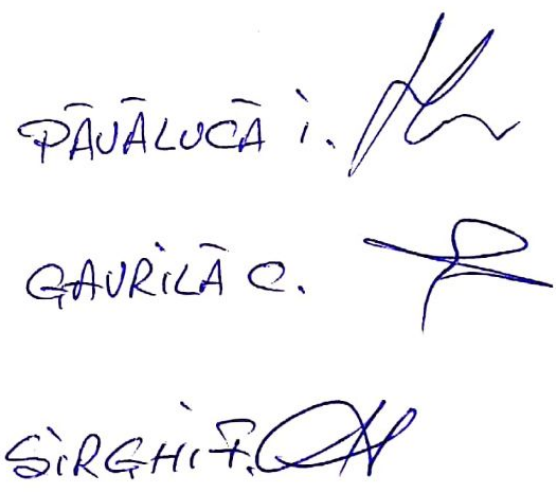 PĂVĂLUCĂ I.
GAVRILĂ C.
SÎRGHI F.